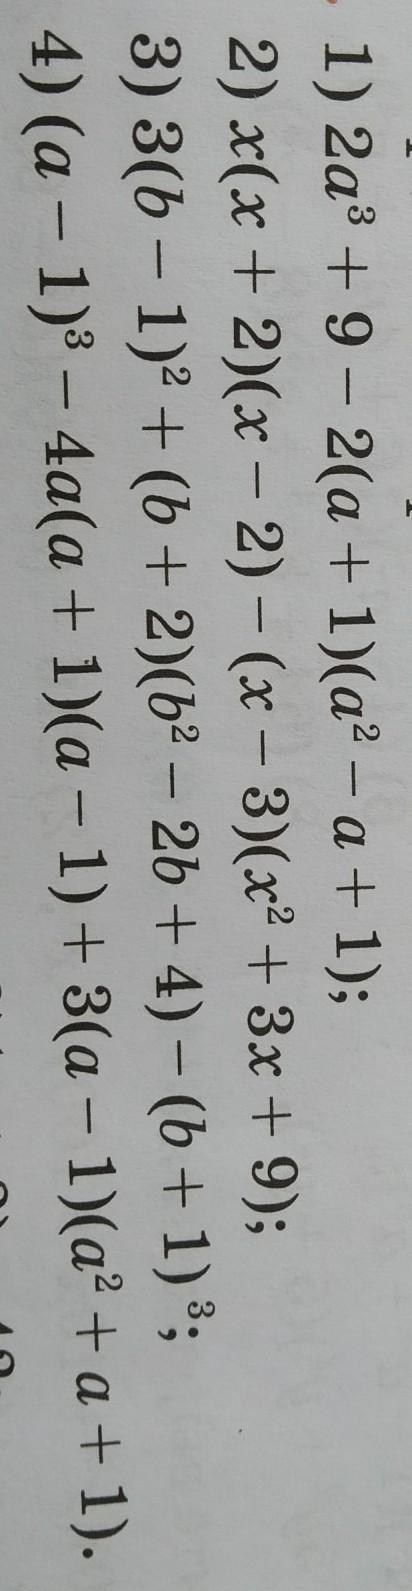 1) 2a³ + 9 − 2(a + 1)(a² − a + 1);
2) x(x + 2)(x − 2) − (x − 3)(x² + 3x + 9);
3) 3(b − 1)² + (b + 2)(b² − 2b + 4) − (b + 1)³;
4) (a − 1)³ − 4a(a + 1)(a − 1) + 3(a − 1)(a² + a + 1).